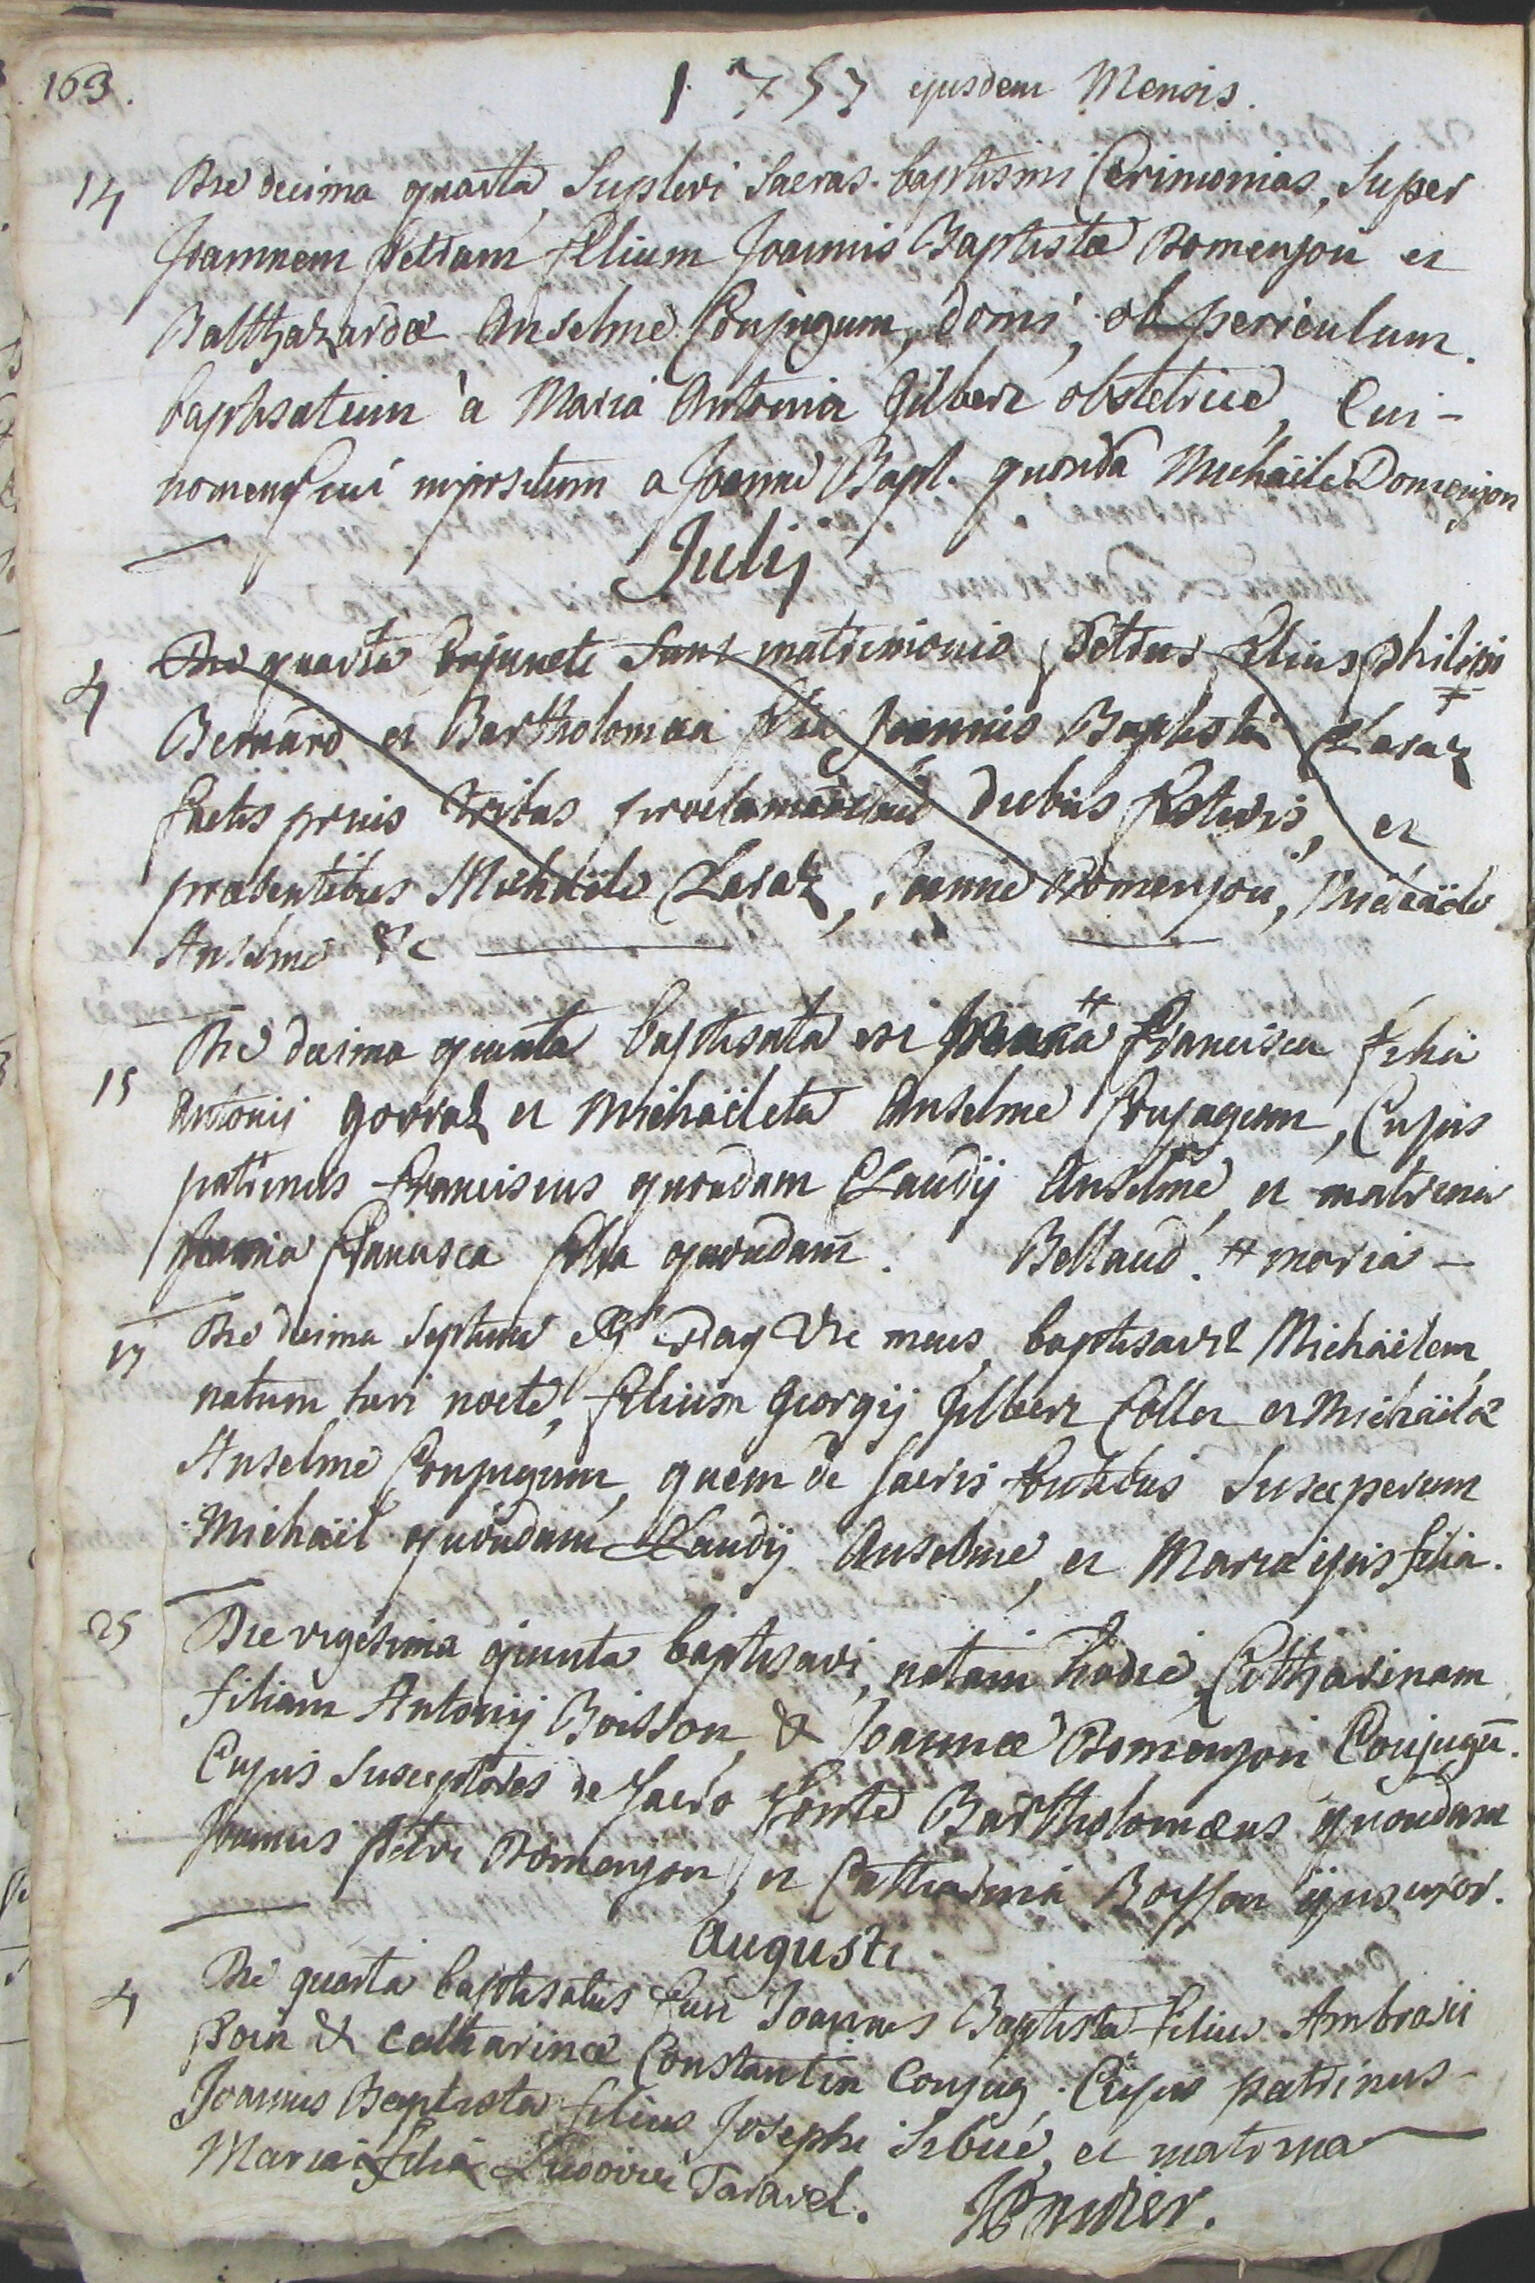 163.
1757 ejusdem Mensis.
14 Die decima quarta, Suplevi Sacras baptismi Cerimonias, Super
Joannem Petrum filium Joannis Baptistæ Domenjon et
Balthazardæ Anselme Conjugum, domi, ob periculum
baptisatum à Maria Antonia Gilbert obstetrice, Cui -
nomen fuit impositum a Joanne Bapt. quonda Michaële Domenjon
Julij
4 Die quarta Conjuncti Sunt matrimonio Petrus filius philippi #
Bernard et Bartholomæa filia Joannis Baptistæ Laraz
factis prius tribus proclamationibus diebus festivis, et
præsentibus Michaële Laraz, Joanne Domenjon, Michaële
Anselme &c
15 Die decima quinta baptisata est # Francisca filia
Antonij Gorraz et Michaëletæ Anselme Conjugum, Cujus
patrinus Franciscus quondam Claudij Anselme, et matrina
Francisca filia quondam Bellaud. # maria -
17 Die decima Septima meus baptisavit Michaëlem,
natum heri nocte, filium Georgij Gilbert Collet et Michaëlæ
Anselme Conjugum, quem de Sacris fontibus Susceperunt
Michaël quondam Claudij Anselme, et Maria ejus filia.
25 Die vigesima quinta baptisavi, natam hodie, Catharinam
filiam Antonij Boisson & Joannæ Domenjon Conjugū.
Cujus Susceptores de Sacro fonte Bartholomæus quondam
Joannis Petri Domenjon, et Catharina Boisson ejus uxor.
Augusti
4 Die quarta baptisatus fuit Joannes Baptista filius Ambrosii
Boin & Catharinæ Constantin Conjug. Cujus patrinus -
Joannes Baptista filius Josephi Sibué, et matrina
Maria filia Ludovici Taravel.